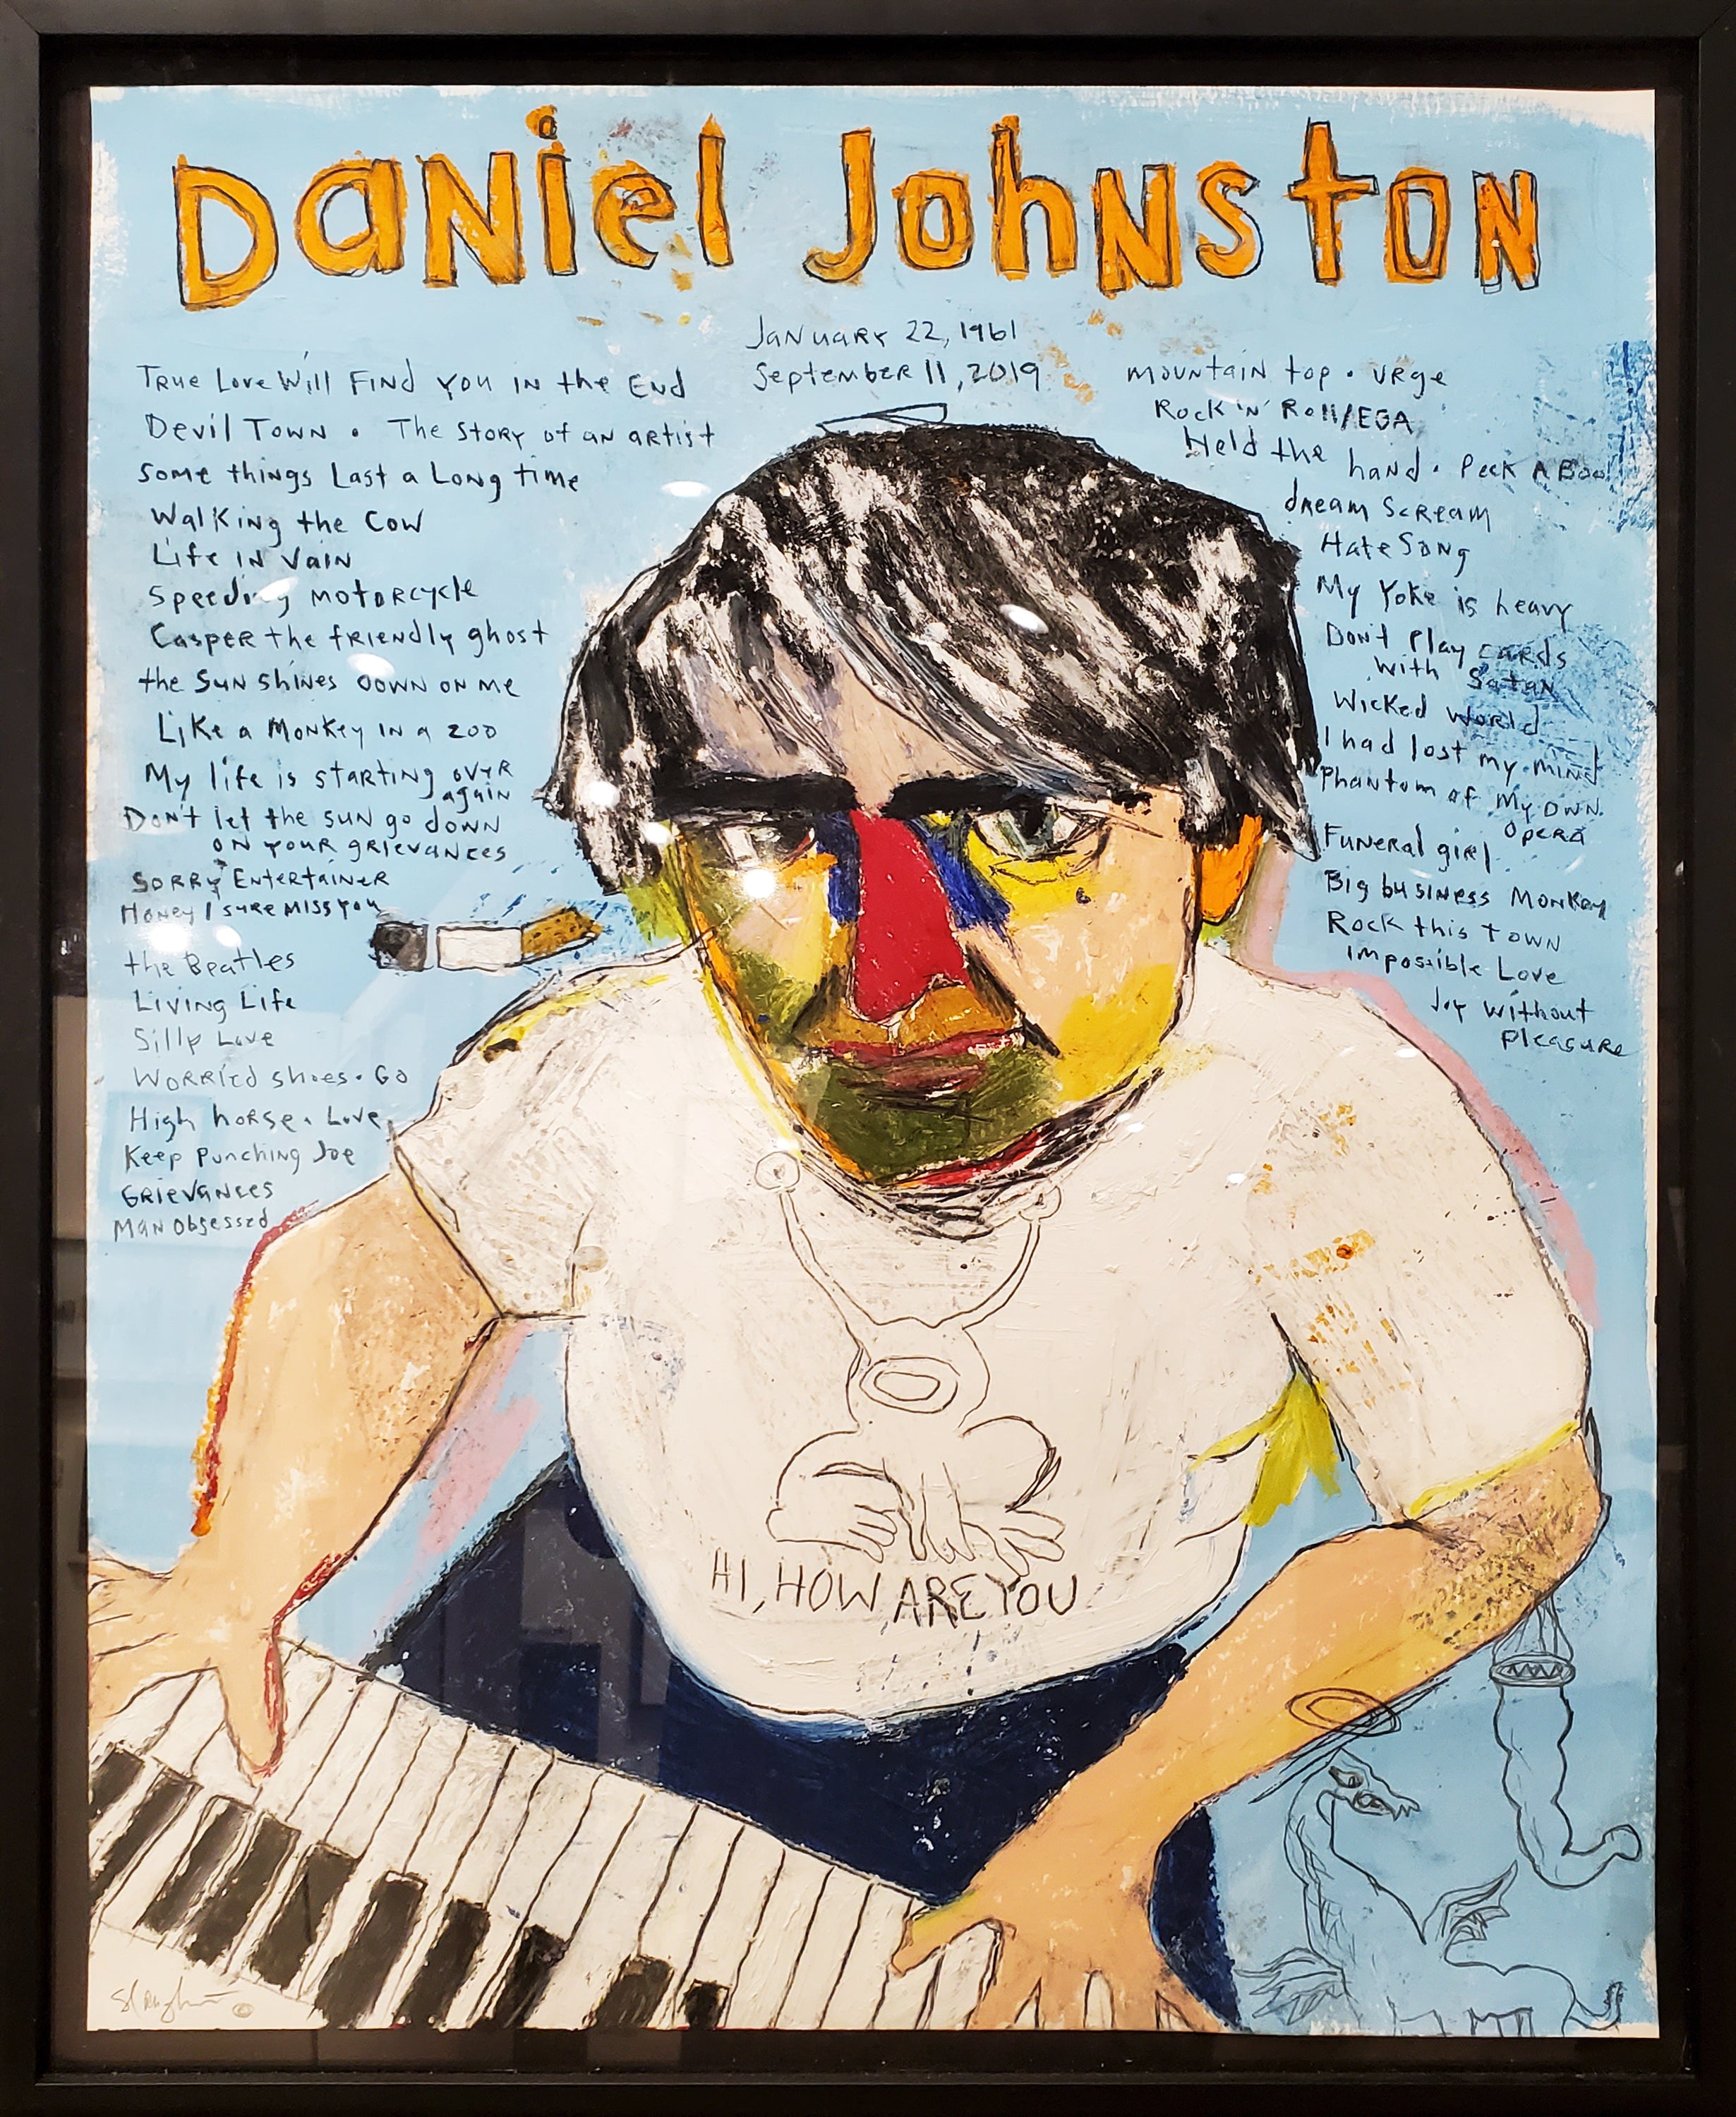 Daniel Johnston
January 22, 1961
September 11, 2019
True Love Will Find you in the End
Devil Town • The Story of an artist
Some things Last a Long time
Walking the Cow
Life in Vain
Speeding motorcycle
Casper the friendly ghost
the Sun Shines Down on me
Like a Monkey in a zoo
My life is starting over
again
Don't let the sun go down
on your grievances
Sorry Entertainer
Honey I sure miss you
the Beatles
Living Life
Silly Love
Worried shoes • Go
High horse • Love
Keep Punching Joe
Grievances
Man Obsessed
mountain top • urge
Rock 'n' Roll/EGA
Held the hand • Peek A Boo
dream Scream
Hate Song
My Yoke is heavy
Don't Play cards
with Satan
Wicked World
I had lost my mind
Phantom of My Own
Opera
Funeral girl
Big business Monkey
Rock this town
Impossible Love
Joy without
Pleasure
HI, HOW ARE YOU
©